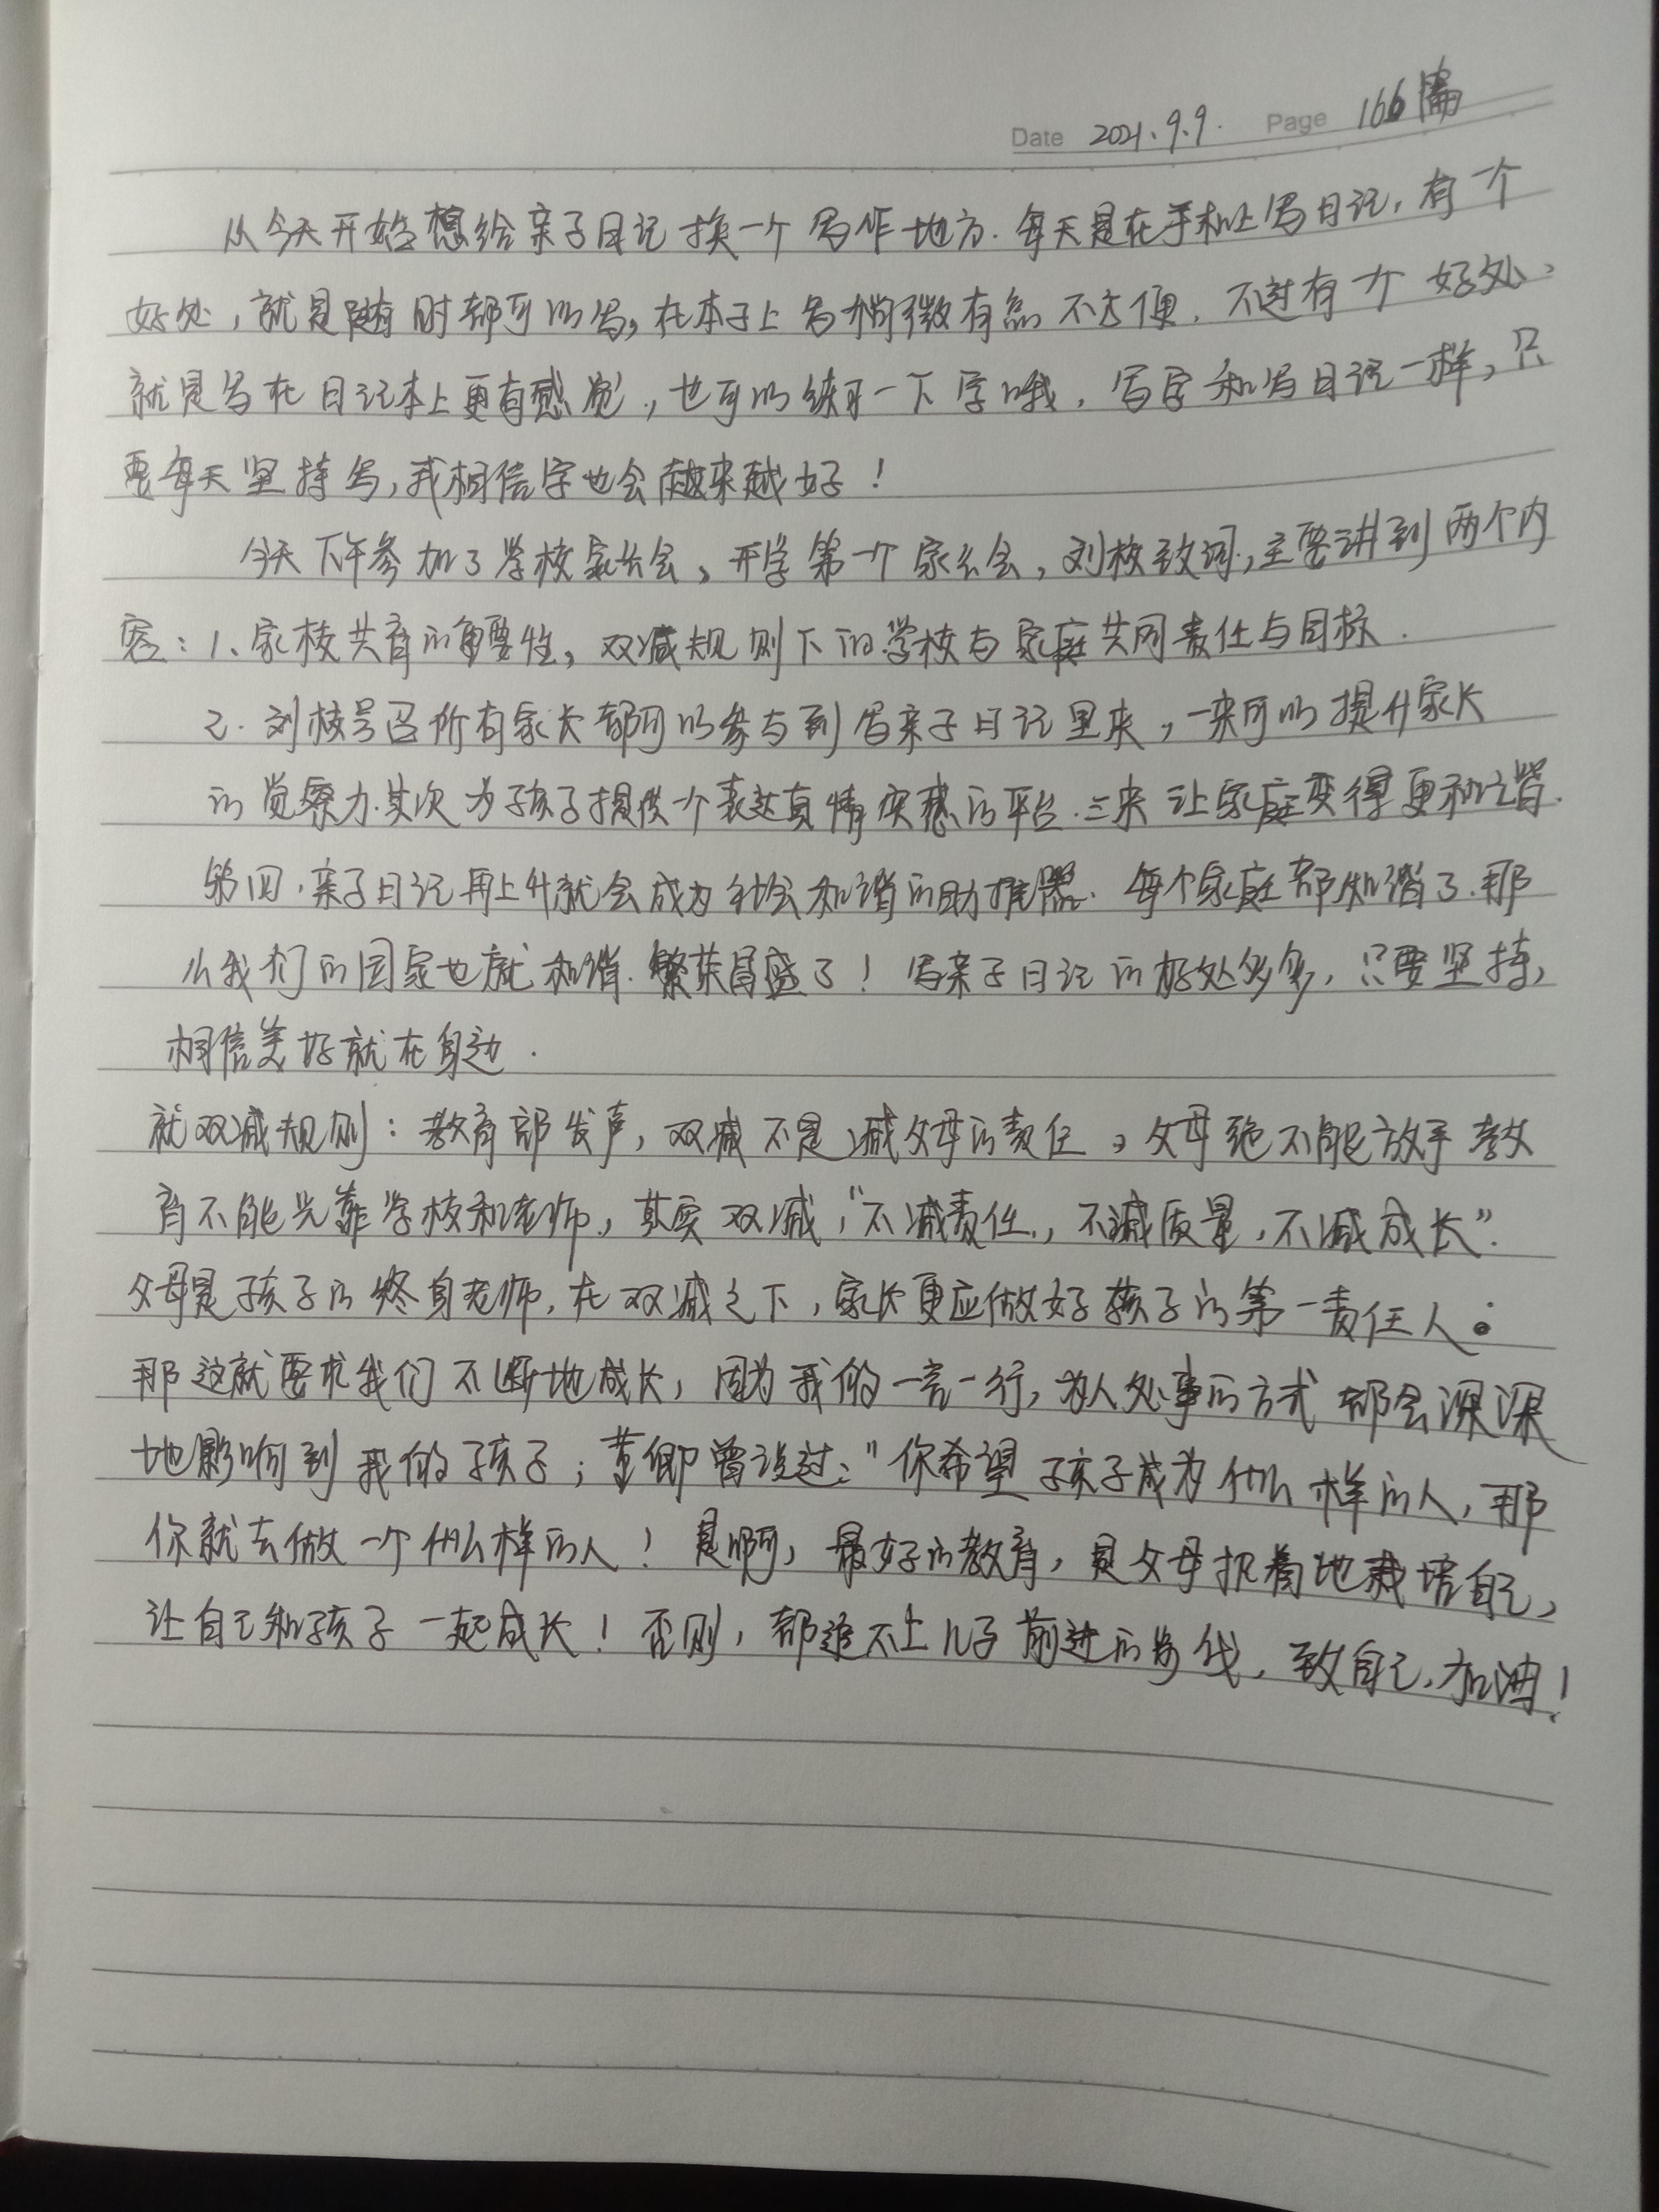 Date 2021.9.9. Page 166篇
从今天开始想给亲子日记换一个写作地方.每天是在手机上写日记,有一个
好处,就是随时都可以写,在本子上写稍微有点不方便.不过有一个好处、
就是写在日记本上更有感觉,也可以练习一下字哦.写字和写日记一样,只
要每天坚持写,我相信字也会越来越好!
今天下午参加了学校家长会,开学第一个家长会,刘校致词,主要讲到两个内
容:1、家校共育的重要性,双减规则下的学校与家庭共同责任与目标.
2.刘校号召所有家长都可以参与到写亲子日记里来,一来可以提升家长
的觉察力.其次为孩子提供一个表达真情实感的平台.三来让家庭变得更和谐.
第四,亲子日记再上升就会成为社会和谐的助推器.每个家庭都和谐了.那
么我们的国家也就和谐.繁荣昌盛了!写亲子日记的好处多多,只要坚持,
相信美好就在身边.
就双减规则:教育部发声,双减不是减父母的责任,父母绝不能放手教
育不能光靠学校和老师,其实双减,“不减责任,不减质量,不减成长”.
父母是孩子的终身老师,在双减之下,家长更应做好孩子的第一责任人。
那这就要求我们不断地成长,因为我们的一言一行,为人处事的方式都会深深
地影响到我们的孩子;董卿曾说过:“你希望孩子成为什么样的人,那
你就去做一个什么样的人!是啊,最好的教育,是父母执着地栽培自己,
让自己和孩子一起成长!否则,都追不上儿子前进的步伐,致自己,加油!